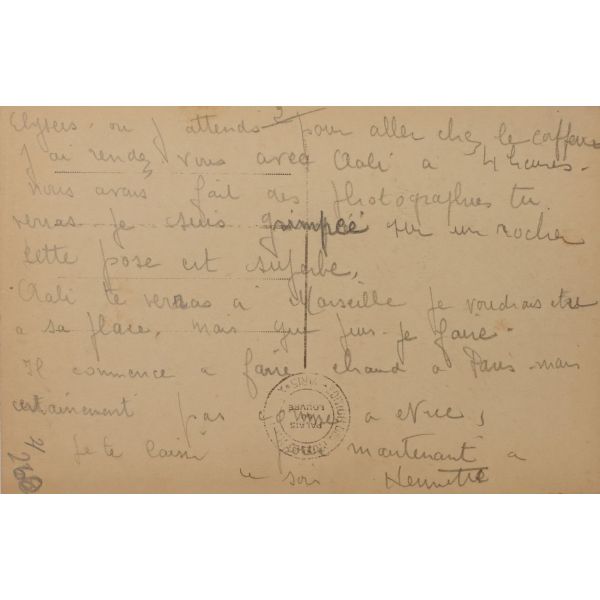 3
Elysees. ou j'attends pour aller chez le coiffeur
j'ai rendez vous avec à 4 heures.
nous avons fait des photographies tu
verras je suis grimpée sur un rocher
cette pose est superbe,
te verras à Marseille je voudrais etre
a sa place, mais que puis-je faire.
Il commence a faire chaud a Paris mais
certainement pas a Nice,
Je te laisse maintenant a
ce soir Henriette
PALAIS
LOUVRE
PARIS